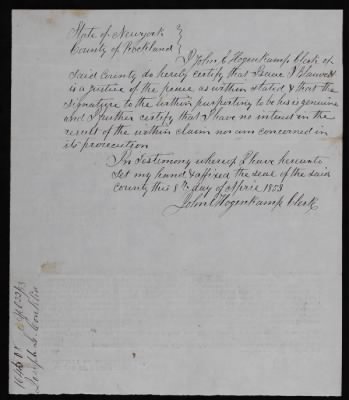 State of Newyork
County of Rockland
I John C Hogenkamp clerk of
said County do hereby certify that Isaac I Blauvelt
is a justice of the peace as within stated & that the
signature to the within purporting to be his is genuine
and I further certify that I have no interest in the
result of the within claim nor am concerned in
its prosecution
In Testimony whereof I have hereunto
set my hand & affixed the seal of the said
county this 8th day of Aprie 1853
John C Hogenkamp Clerk
Joseph